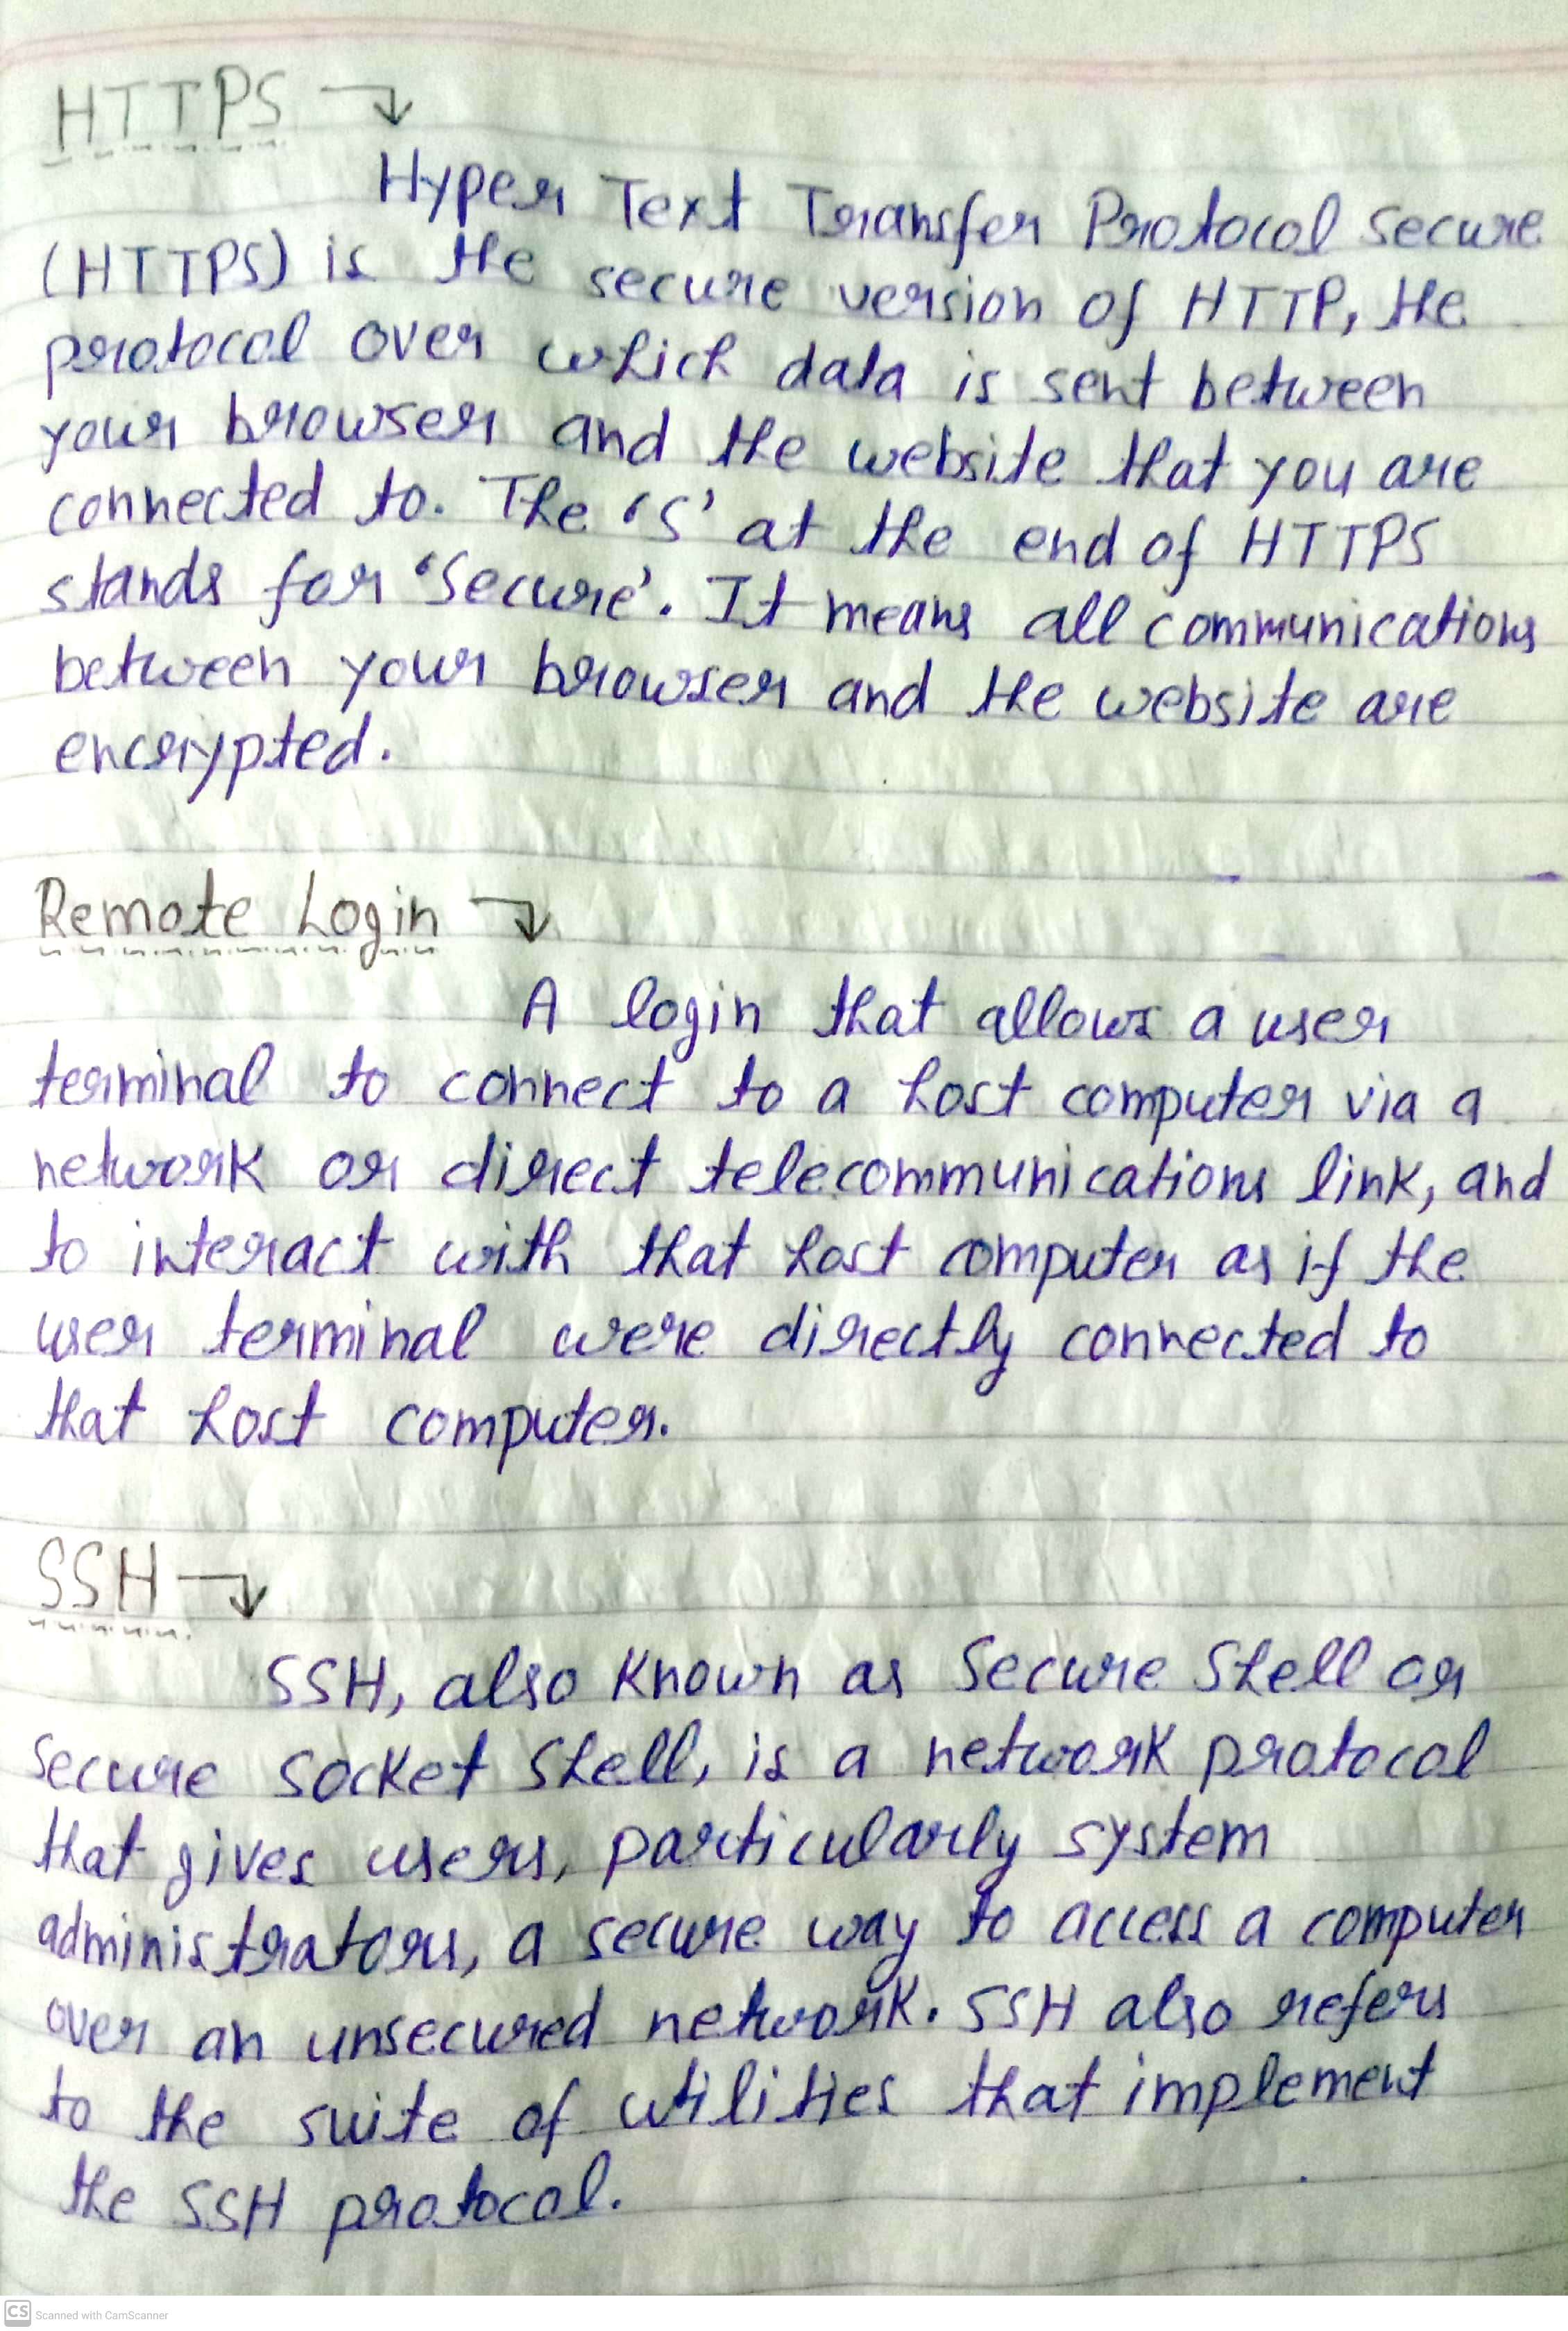 HTTPS →
Hyper Text Transfer Protocol Secure
(HTTPS) is the secure version of HTTP, the
protocol over which data is sent between
your browser and the website that you are
connected to. The 'S' at the end of HTTPS
stands for 'Secure'. It means all communications
between your browser and the website are
encrypted.
Remote Login →
A login that allows a user
terminal to connect to a host computer via a
network or direct telecommunications link, and
to interact with that host computer as if the
user terminal were directly connected to
that host computer.
SSH →
SSH, also known as Secure Shell or
Secure Socket Shell, is a network protocol
that gives users, particularly system
administrators, a secure way to access a computer
over an unsecured network. SSH also refers
to the suite of utilities that implement
the SSH protocol.
CS Scanned with CamScanner